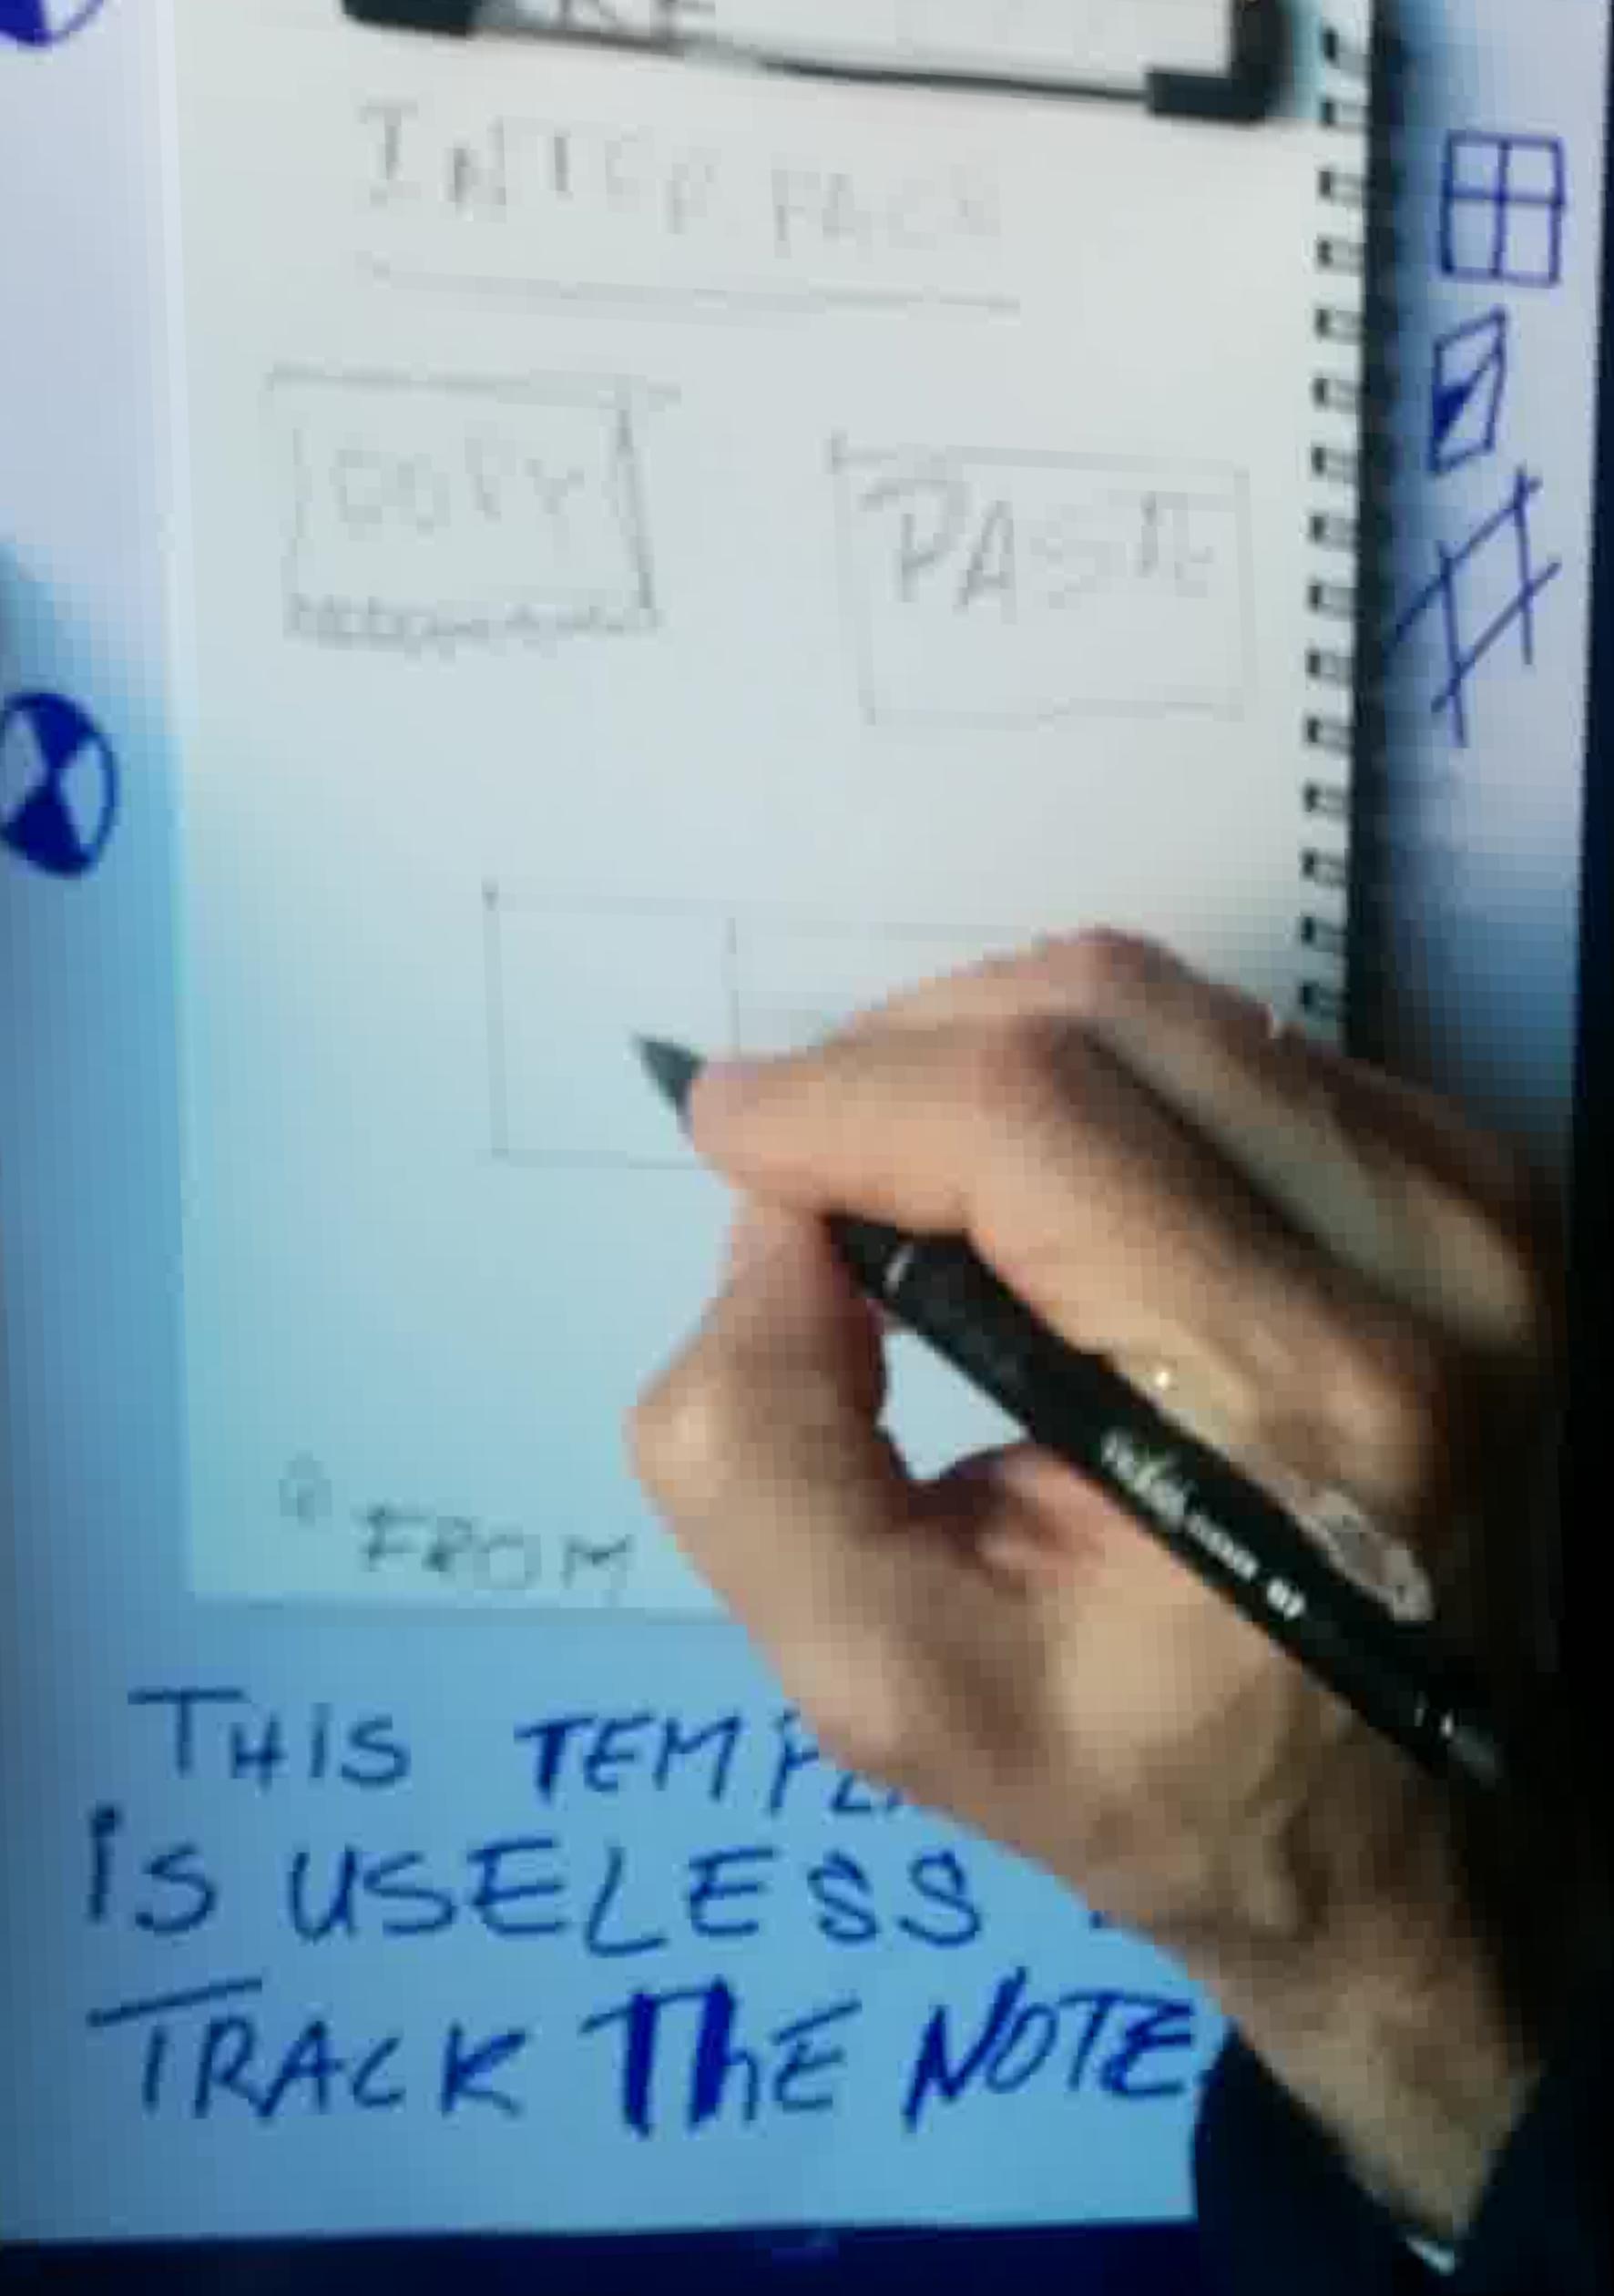 INTERFACE
COPY
PASTE
FROM
THIS TEMPL
IS USELESS
TRACK THE NOTE